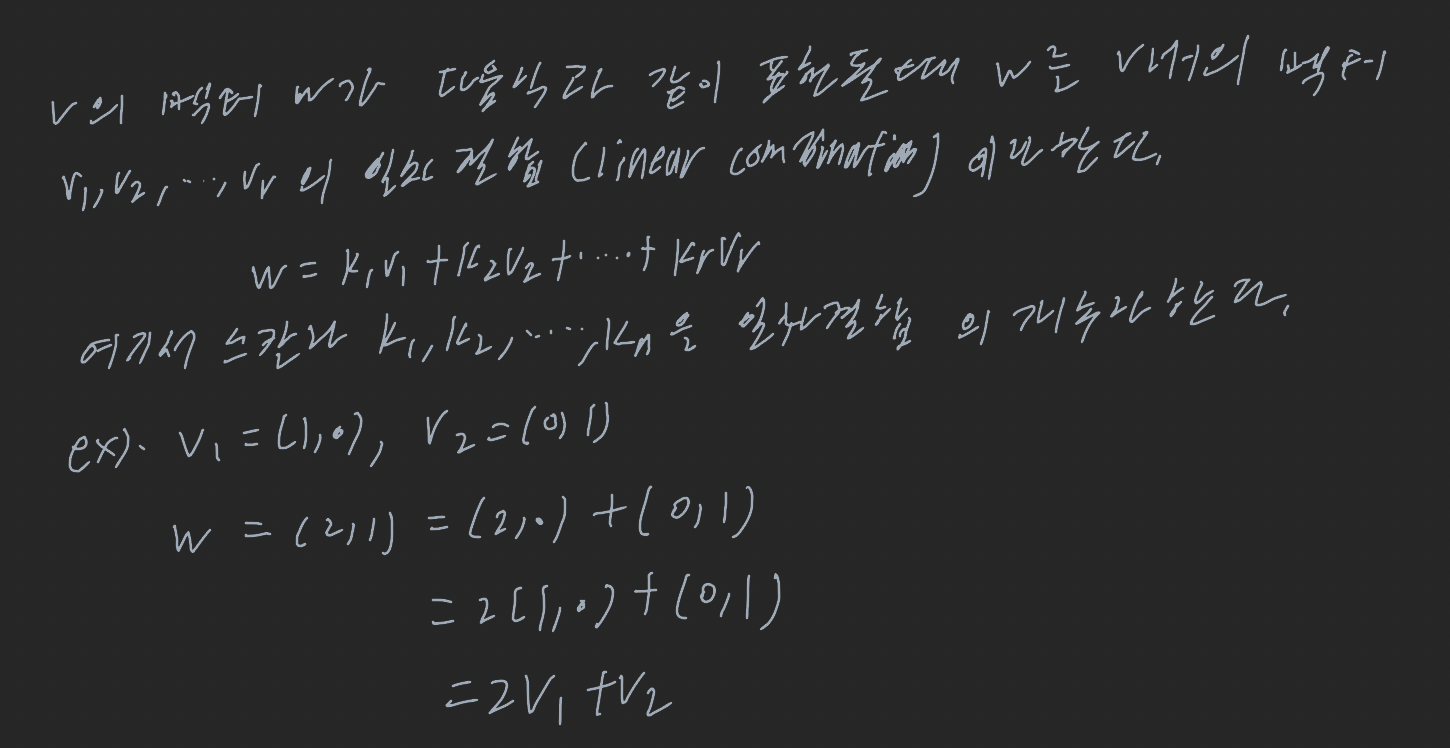 V의 벡터 w가 다음식과 같이 표현될때 w를 V내의 벡터
v₁, v₂, ..., vᵣ의 일차결합 (linear combination) 이라 한다.
w = k₁v₁ + k₂v₂ + ..... + kᵣvᵣ
여기서 스칼라 k₁, k₂, ....., kₙ을 일차결합의 계수라 한다.
ex). v₁ = (1, 0), v₂ = (0, 1)
w = (2, 1) = (2, 0) + (0, 1)
= 2(1, 0) + (0, 1)
= 2v₁ + v₂